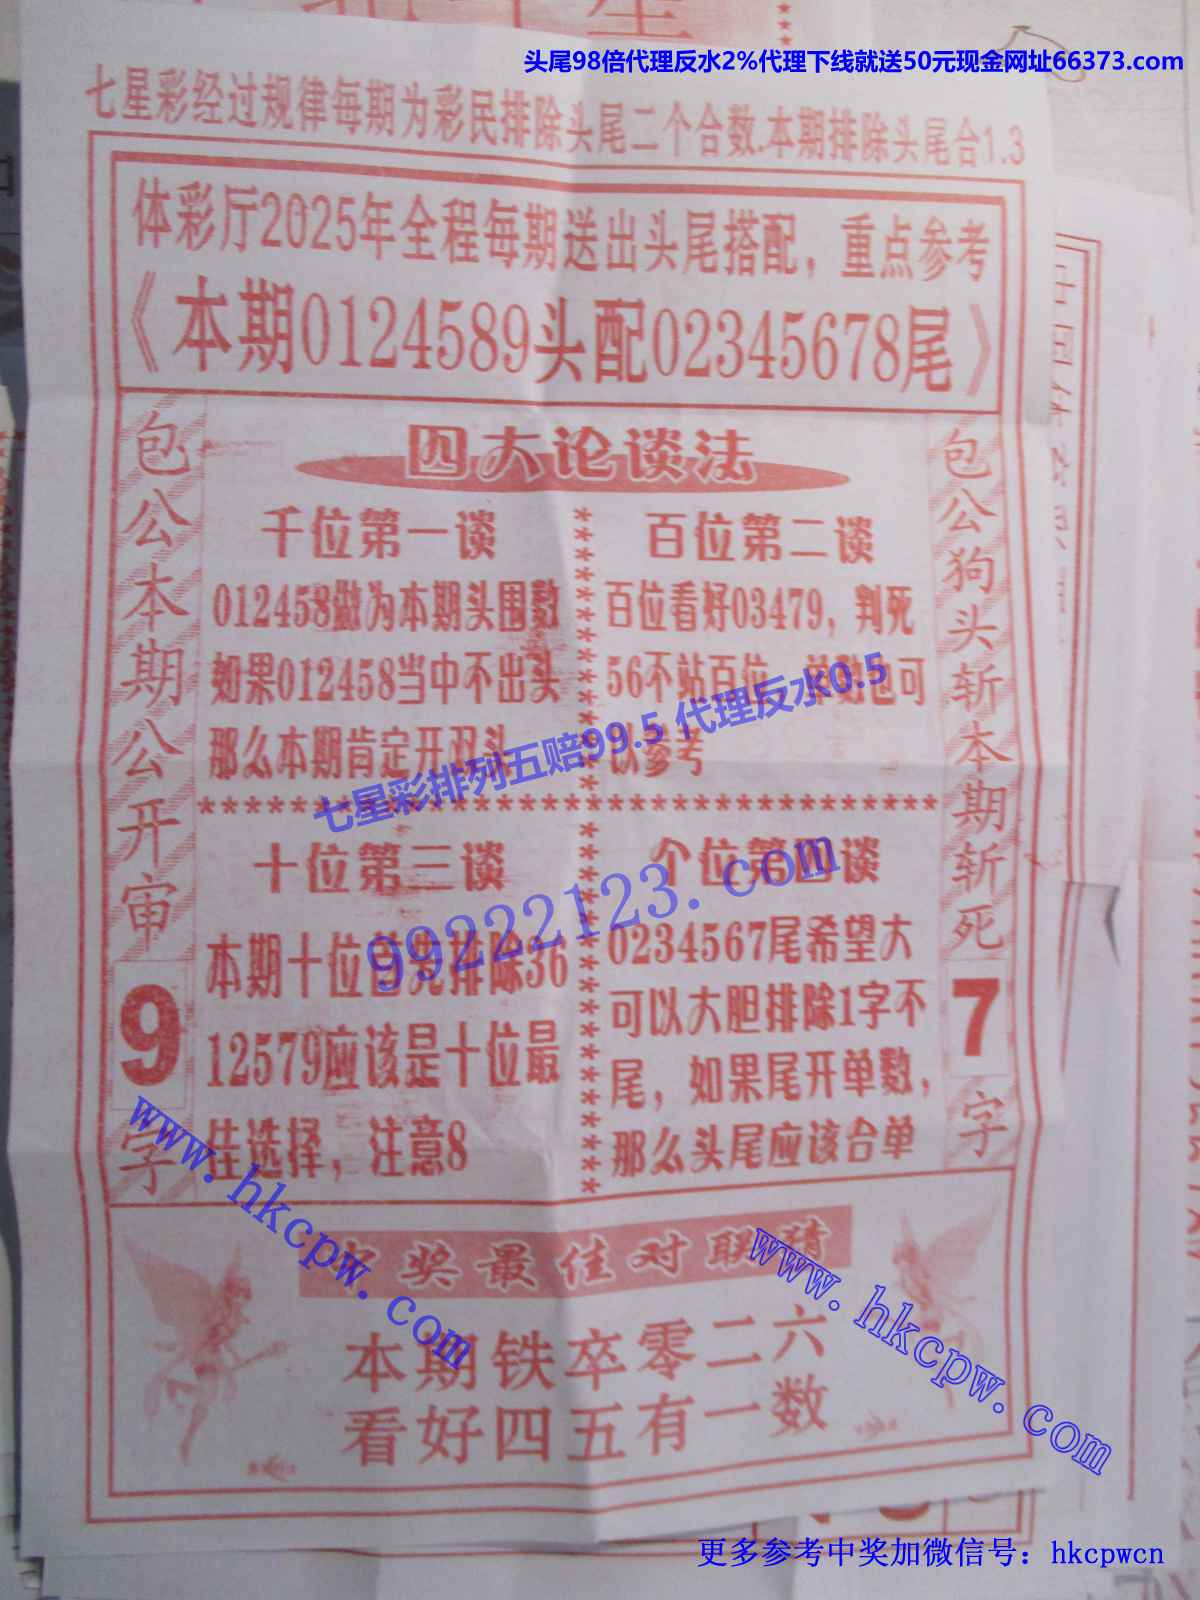 头尾98倍代理反水2%代理下线就送50元现金网址66373.com
七星彩经过规律每期为彩民排除头尾二个合数.本期排除头尾合1.3
体彩厅2025年全程每期送出头尾搭配，重点参考
《本期0124589头配02345678尾》
包公本期公开审
9
字
四大论谈法
千位第一谈
012458做为本期头围数
如果012458当中不出头
那么本期肯定开双头
百位第二谈
百位看好03479，判死
56不站百位，单数也可
以参考
七星彩排列五赔99.5 代理反水0.5
********************************
十位第三谈
本期十位首先排除36
12579应该是十位最
佳选择，注意8
个位第四谈
0234567尾希望大
可以大胆排除1字不
尾，如果尾开单数，
那么头尾应该合单
99222123.com
包公狗头斩本期斩死
7
字
www.hkcpw.com
www.hkcpw.com
奖最佳对联猜
本期铁卒零二六
看好四五有一数
更多参考中奖加微信号：hkcpwcn